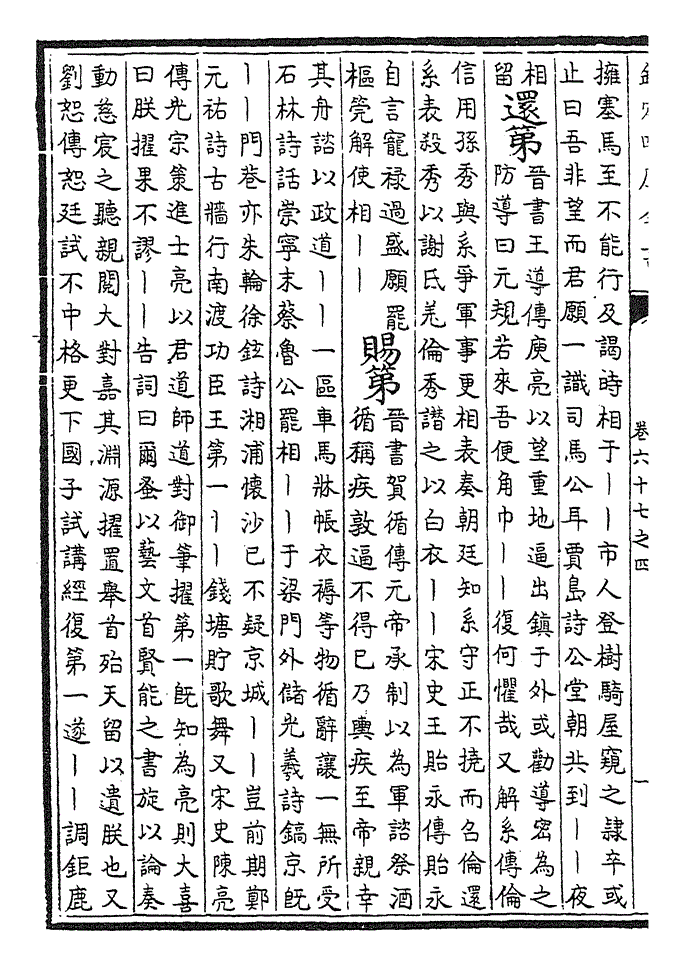 卷六十七之四
一
擁塞馬至不能行及謁時相于丨丨市人登樹騎屋窺之隷卒或
止曰吾非望而君願一識司馬公耳賈島詩公堂朝共到丨丨夜
相
留
還第
晉書王導傳庾亮以望重地逼出鎮于外或勸導宻為之
防導曰元規若來吾便角巾丨丨復何懼哉又解系傳倫
信用孫秀與系爭軍事更相表奏朝廷知系守正不撓而召倫還
系表殺秀以謝氐羌倫秀譖之以白衣丨丨宋史王貽永傳貽永
自言寵祿過盛願罷
樞筦解使相丨丨
賜第
晉書賀循傳元帝承制以為軍諮祭酒
循稱疾敦逼不得已乃輿疾至帝親幸
其舟諮以政道丨丨一區車馬牀帳衣褥等物循辭讓一無所受
石林詩話崇寧末蔡魯公罷相丨丨于梁門外儲光羲詩鎬京旣
丨丨門巷亦朱輪徐鉉詩湘浦懷沙已不疑京城丨丨豈前期鄭
元祐詩古牆行南渡功臣王第一丨丨錢塘貯歌舞又宋史陳亮
傳光宗策進士亮以君道師道對御筆擢第一旣知為亮則大喜
曰朕擢果不謬丨丨告詞曰爾蚤以藝文首賢能之書旋以論奏
動慈宸之聽親閱大對嘉其淵源擢置舉首殆天留以遺朕也又
劉恕傳恕廷試不中格更下國子試講經復第一遂丨丨調鉅鹿